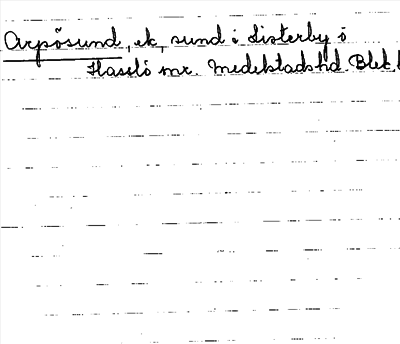 Arpösund, ek, sund i Listerby ö
Hasslö mr. Medelstads hd Blek.